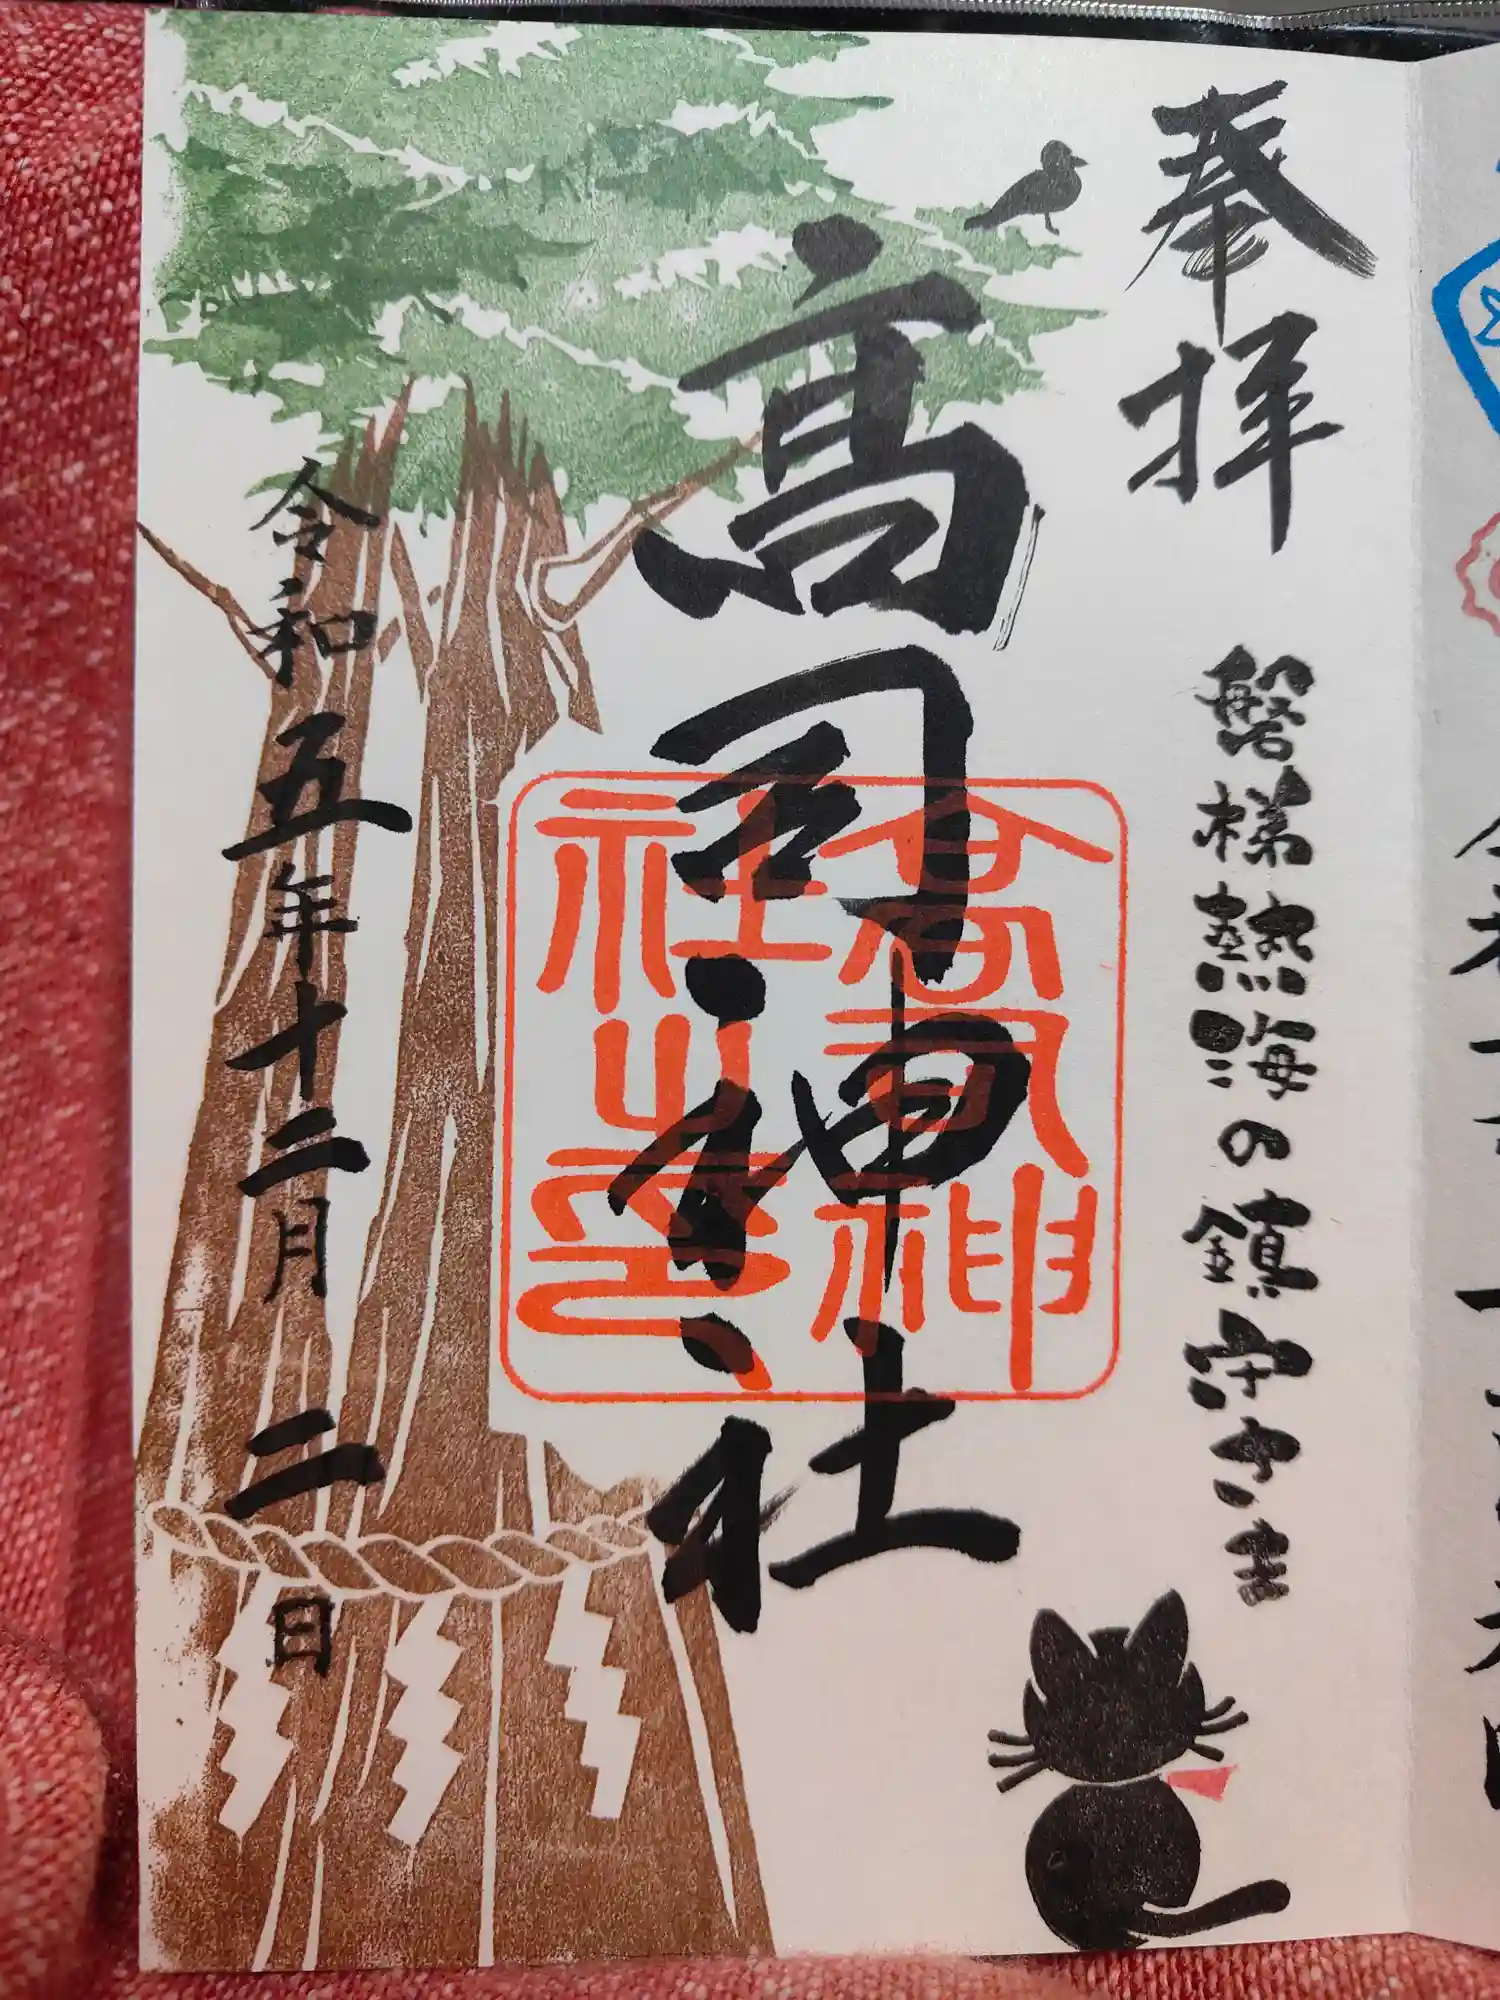 奉拝
磐梯熱海の鎮守さま
高司神社
高司神社之印
令和五年十二月二日